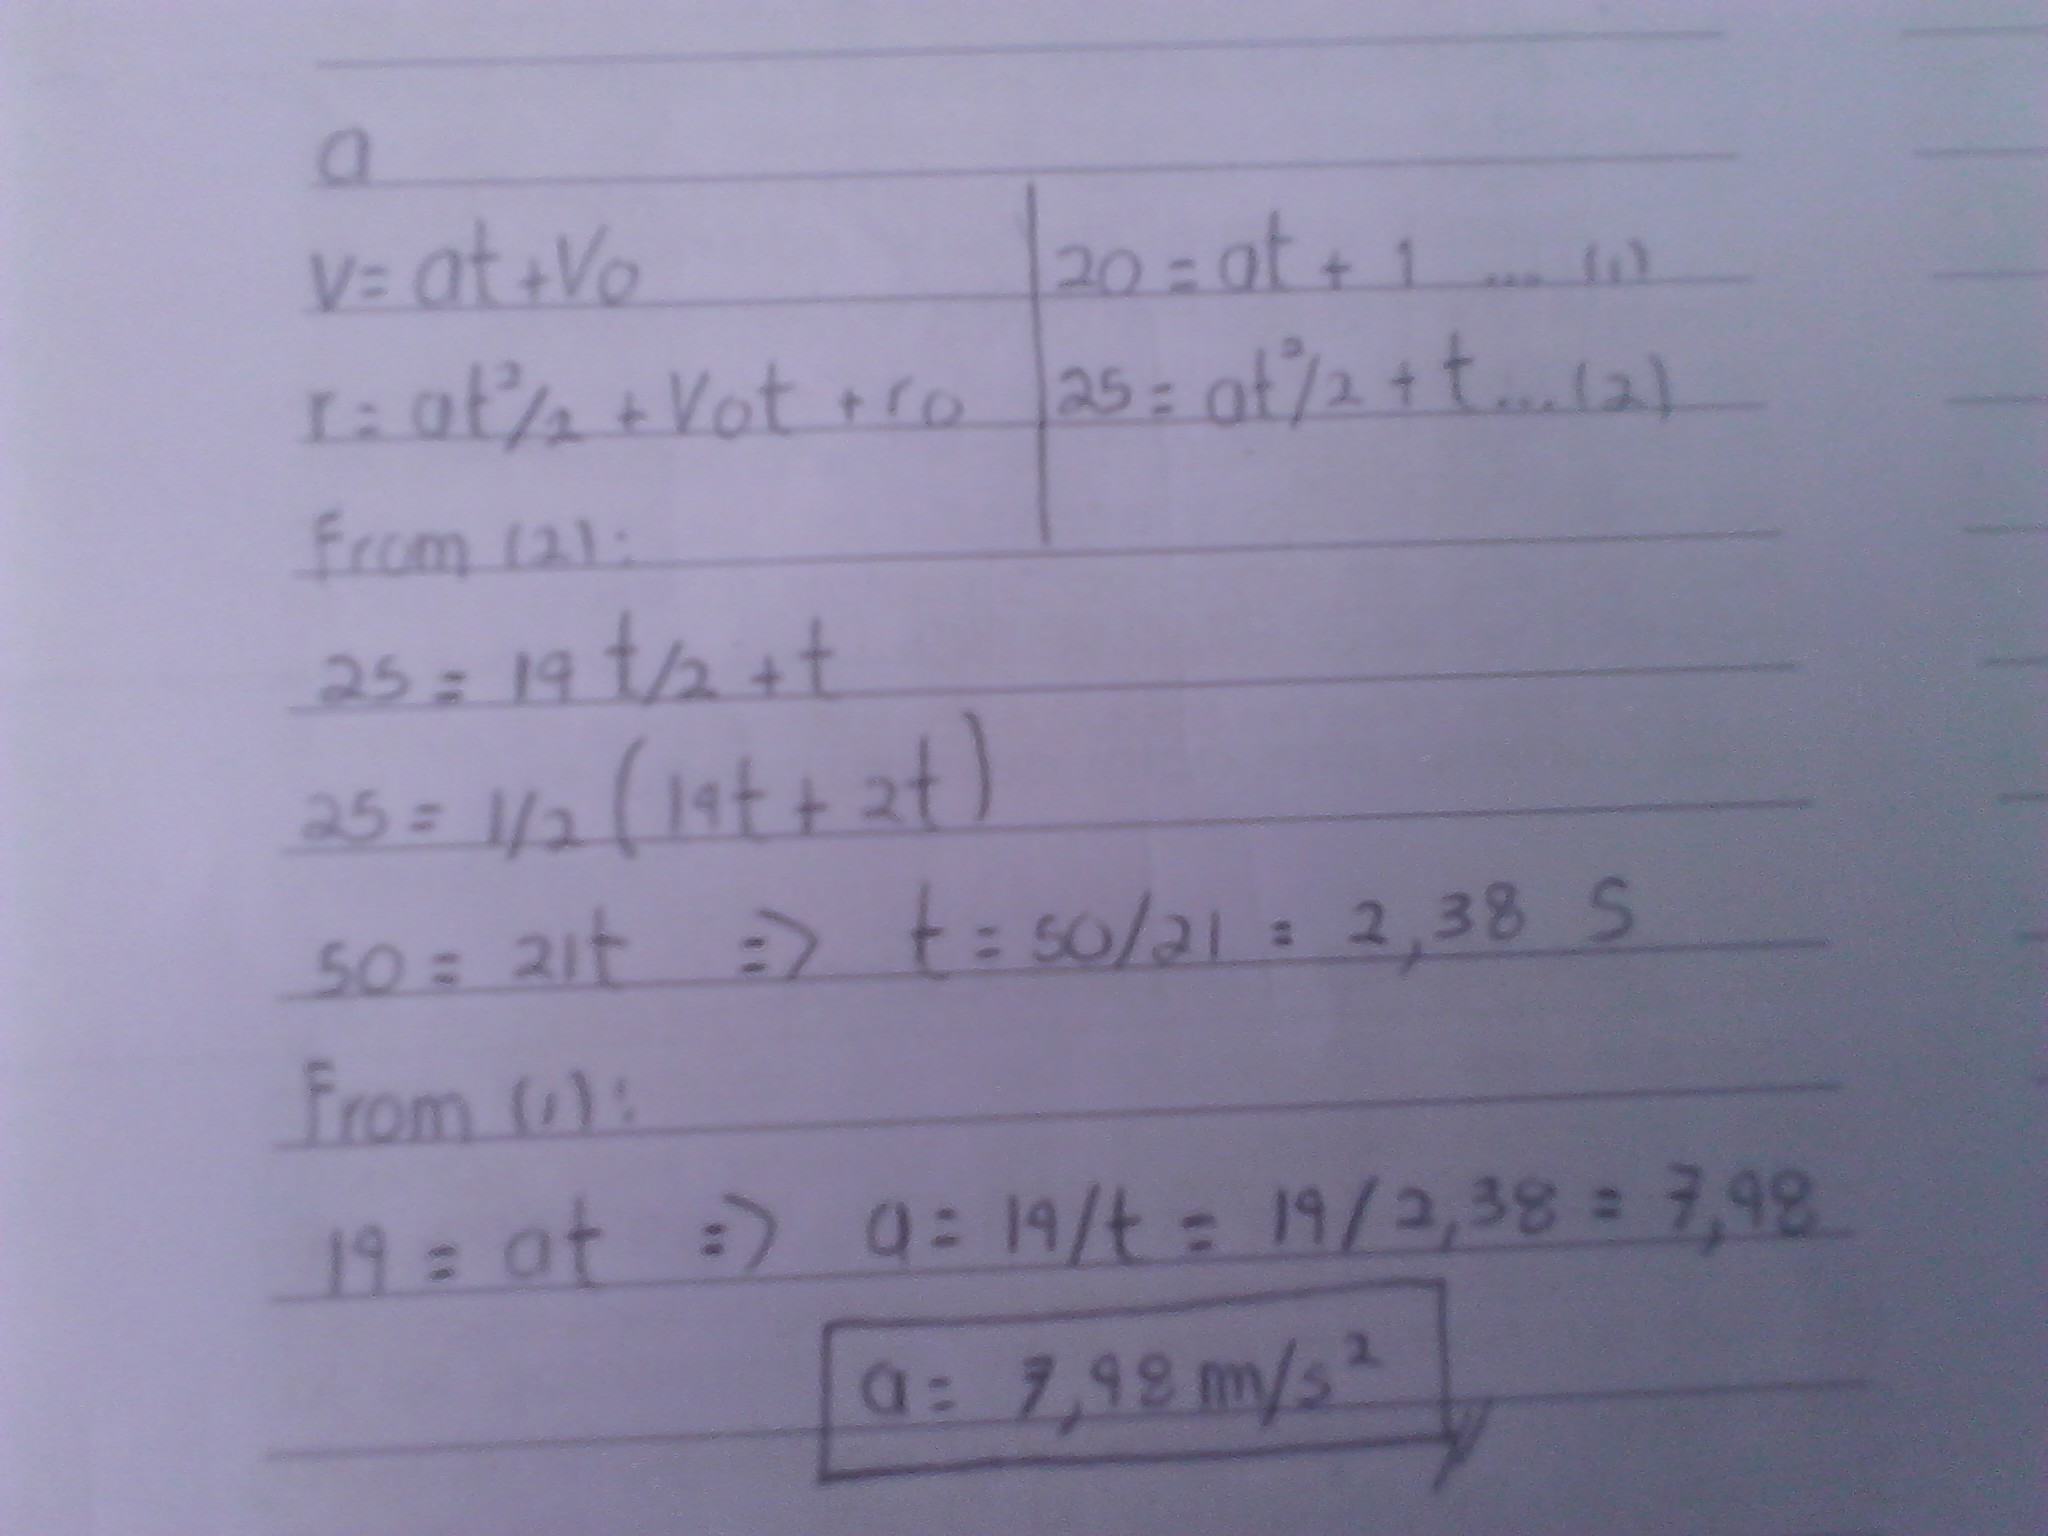 a
v= at+Vo
20 = at + 1 .... (1)
r= at²/2 + Vot + ro
25= at²/2 + t....(2)
From (2):
25 = 19 t/2 + t
25 = 1/2 (19t + 2t)
50 = 21t => t = 50/21 = 2,38 S
From (1):
19 = at => a = 19/t = 19/2,38 = 7,98
a= 7,98 m/s²